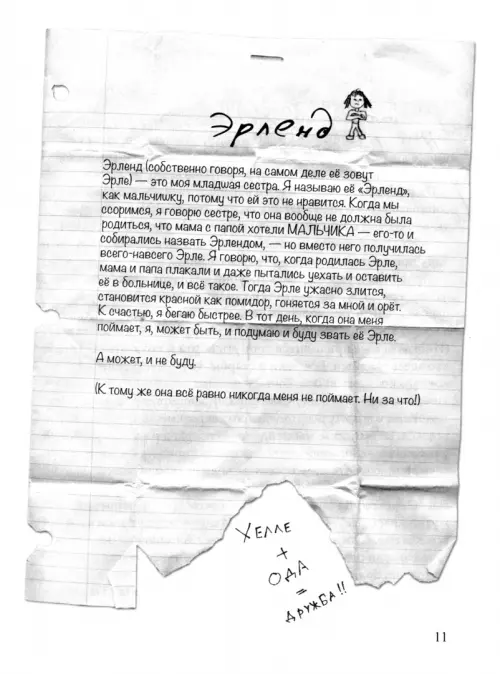 Эрленд
Эрленд (собственно говоря, на самом деле её зовут
Эрле) — это моя младшая сестра. Я называю её «Эрленд»,
как мальчишку, потому что ей это не нравится. Когда мы
ссоримся, я говорю сестре, что она вообще не должна была
родиться, что мама с папой хотели МАЛЬЧИКА — его-то и
собирались назвать Эрлендом, — но вместо него получилась
всего-навсего Эрле. Я говорю, что, когда родилась Эрле,
мама и папа плакали и даже пытались уехать и оставить
её в больнице, и всё такое. Тогда Эрле ужасно злится,
становится красной как помидор, гоняется за мной и орёт.
К счастью, я бегаю быстрее. В тот день, когда она меня
поймает, я, может быть, и подумаю и буду звать её Эрле.
А может, и не буду.
(К тому же она всё равно никогда меня не поймает. Ни за что!)
ХЕЛЛЕ
+
ОДА
=
ДРУЖБА!!
11